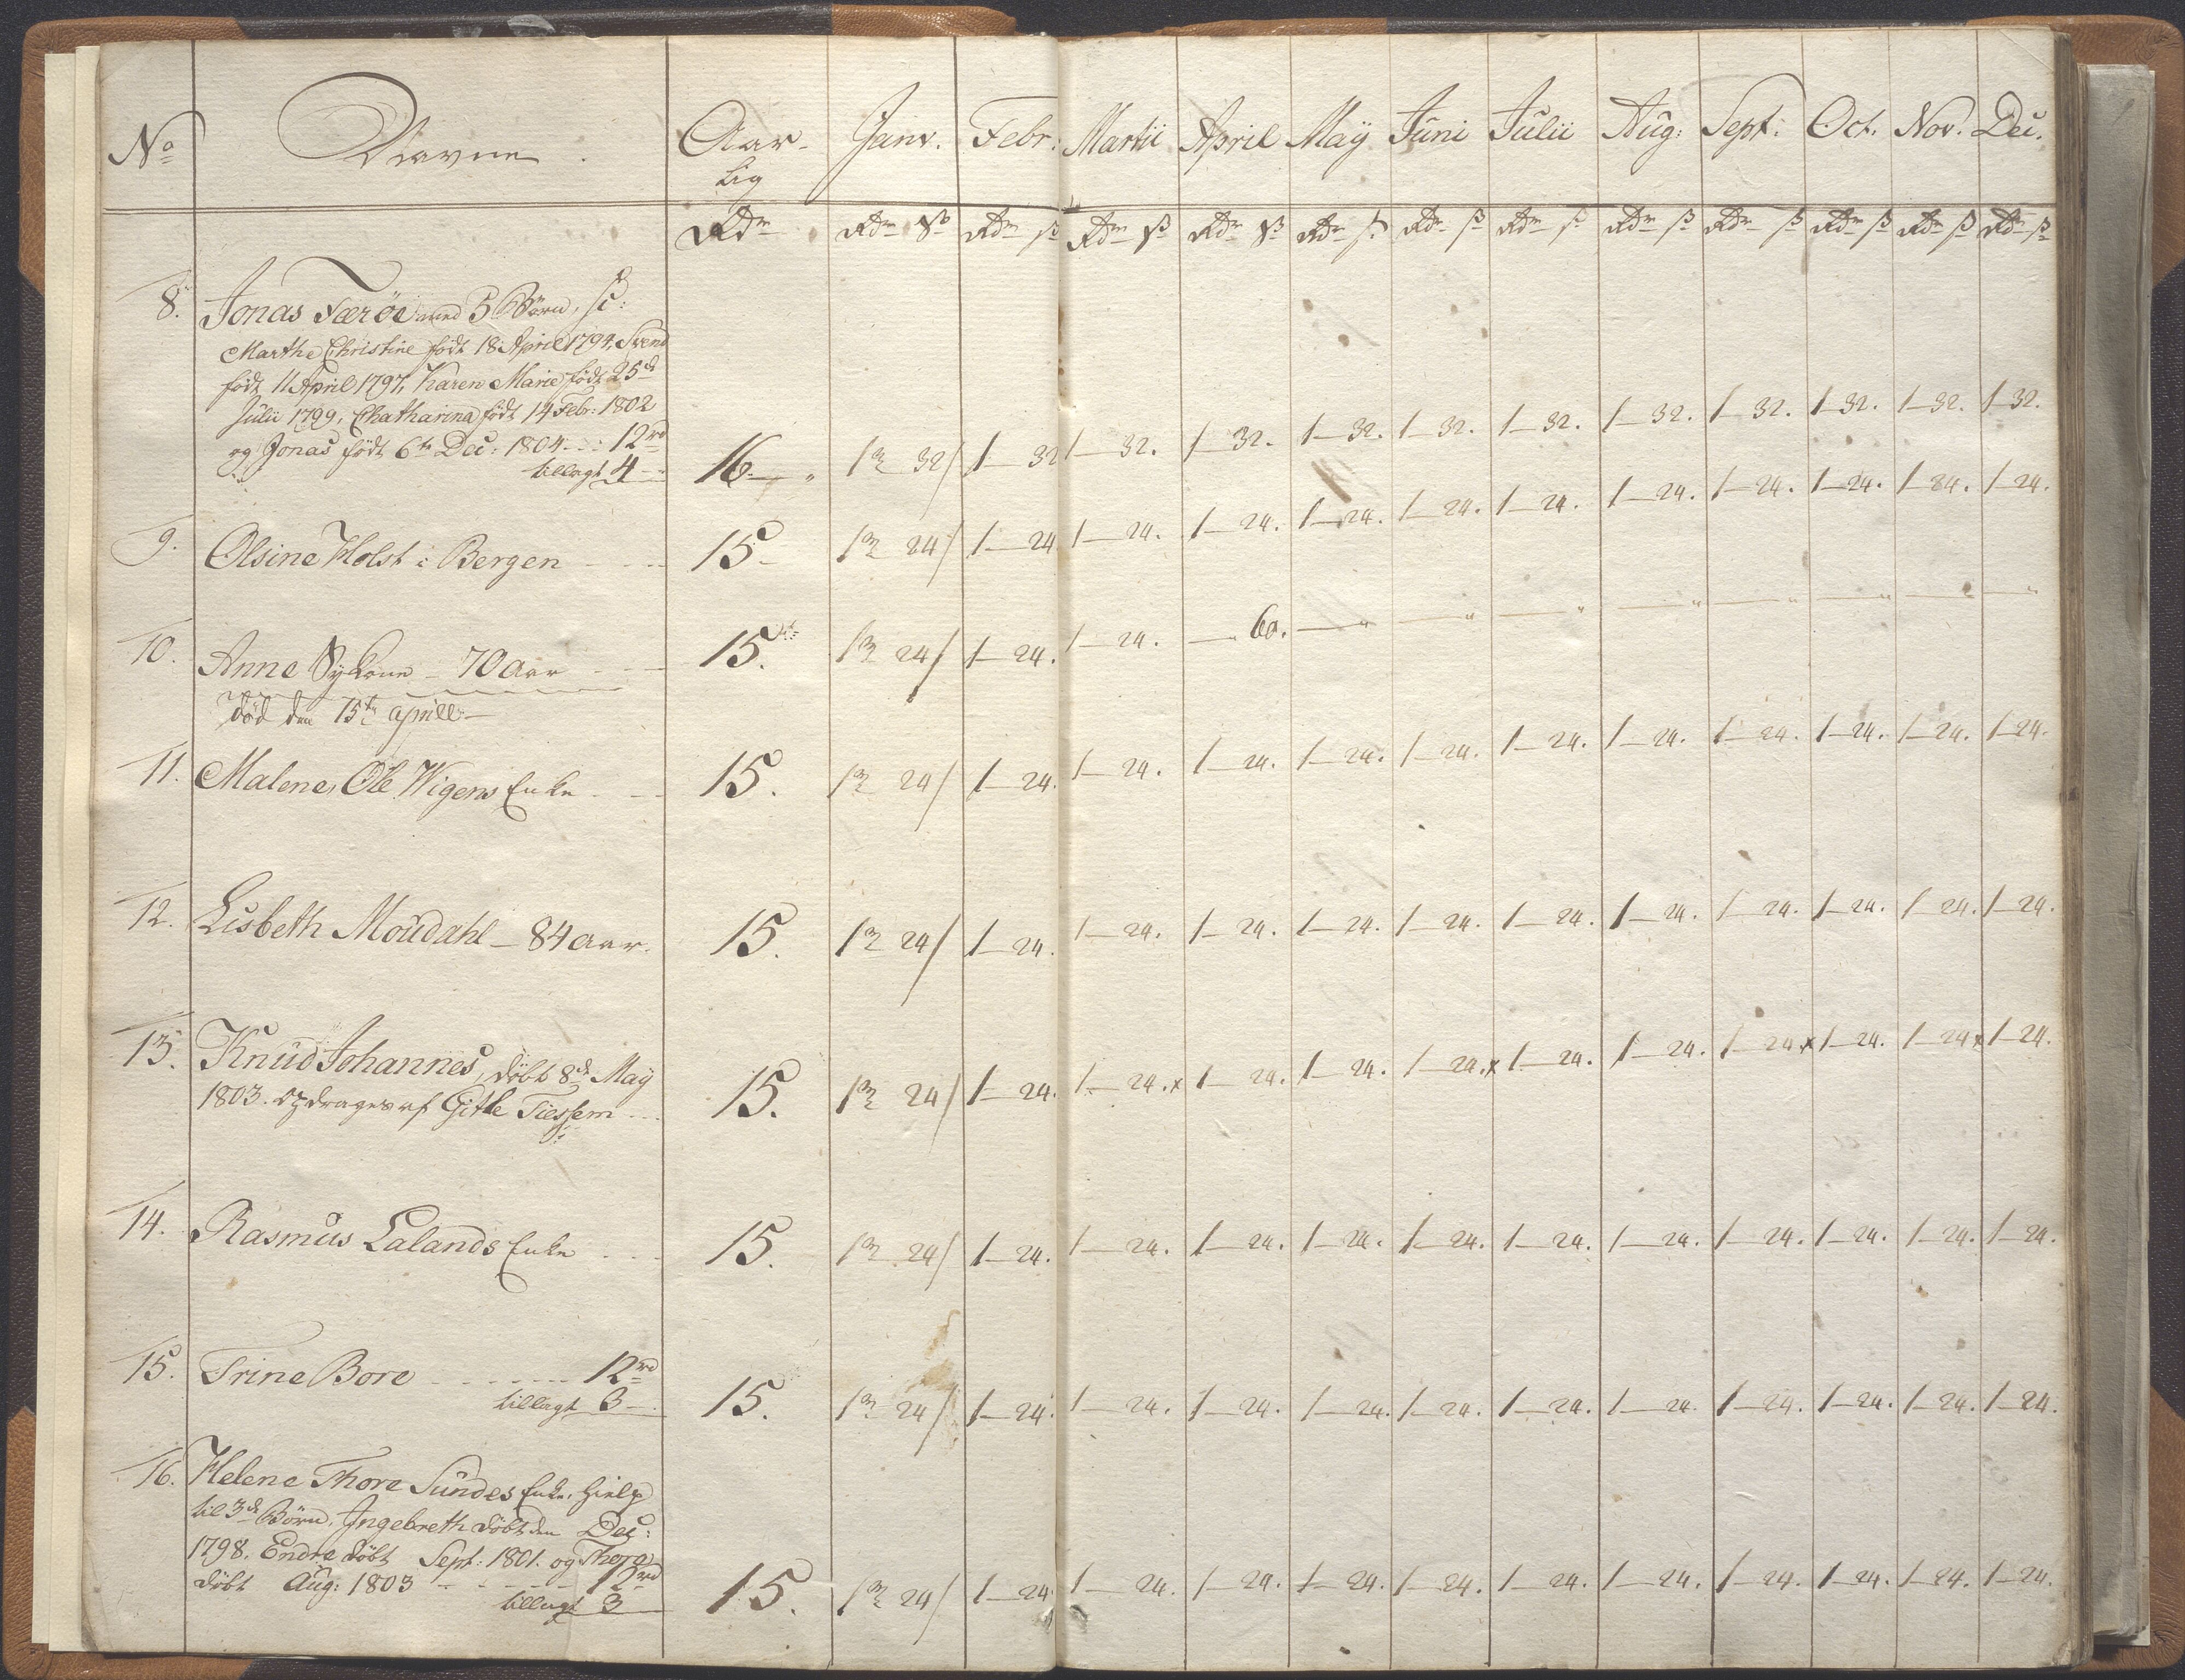 No Navne. Aar- Janr. Febr: Martii April Maÿ Juni Julii Aug: Sept: Oct. Nov. Dec.
lig
Rdr Rdr ß Rdr ß Rdr ß Rdr ß Rdr ß Rdr ß Rdr ß Rdr ß Rdr ß Rdr ß Rdr ß Rdr ß
8. Jonas Færöe med 5 Börn, sc:
Marthe Christine födt 18 April 1794, Svend
födt 11 April 1797, Karen Marie födt 25de
Julii 1799, Chatharina födt 14 Febr: 1802
og Jonas födt 6te Dec: 1804 - - : 12rd
tillagt 4 - 16 - " 1rd 32/ 1 - 32 1 - 32. 1 - 32. 1 - 32. 1 - 32. 1 - 32. 1 - 32. 1 - 32. 1 - 32. 1 - 32. 1 - 32.
9. Olsine Holst i Bergen - - - 15 - 1rd 24/ 1 - 24 1 - 24. 1 - 24. 1 - 24. 1 - 24. 1 - 24. 1 - 24. 1 - 24. 1 - 24. 1 - 84. 1 - 24.
10. Anne - 70 Aar - - 15. 1rd 24/ 1 - 24. 1 - 24. - 60. - " - " - " - " - " - " - " - "
död den 15te aprill -
11. Malene, Ole Wigens Enke - - - 15. 1rd 24/ 1 - 24. 1 - 24. 1 - 24. 1 - 24. 1 - 24. 1 - 24. 1 - 24. 1 - 24. 1 - 24. 1 - 24. 1 - 24.
12. Lisbeth Moüdahl - 84 aar. 15. 1rd 24/ 1 - 24. 1 - 24. 1 - 24. 1 - 24. 1 - 24. 1 - 24. 1 - 24. 1 - 24. 1 - 24. 1 - 24. 1 - 24.
13. Knud Johannes, döbt 8de Maÿ
1803. opdrages af Gitle Tiessem - - 15. 1rd 24/ 1 - 24. 1 - 24. x 1 - 24. 1 - 24. 1 - 24. x 1 - 24. 1 - 24. 1 - 24 x 1 - 24. 1 - 24 x 1 - 24.
14. Rasmus Lalands Enke - - - 15. 1rd 24/ 1 - 24. 1 - 24. 1 - 24. 1 - 24. 1 - 24. 1 - 24. 1 - 24. 1 - 24. 1 - 24. 1 - 24. 1 - 24.
15. Trine Bore - - - - - - 12rd
tillagt 3 - 15. 1rd 24/ 1 - 24. 1 - 24. 1 - 24. 1 - 24. 1 - 24. 1 - 24. 1 - 24. 1 - 24. 1 - 24. 1 - 24. 1 - 24.
16. Helene Thore Sundes Enke, hielp
til 3de Börn. Ingebreth döbt den Dec:
1798. Endre döbt Sept: 1801. og Thore
döbt Aug: 1803 - - - - - 12rd
tillagt 3 15. 1rd 24/ 1 - 24 1 - 24. 1 - 24. 1 - 24. 1 - 24. 1 - 24. 1 - 24. 1 - 24. 1 - 24. 1 - 24. 1 - 24.